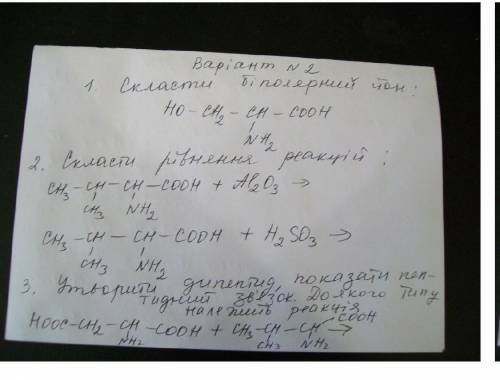 Варіант №2
1. Скласти біполярний йон:
HO-CH2-CH-COOH
NH2
2. Скласти рівняння реакцій:
CH3-CH-CH-COOH + Al2O3 →
CH3 NH2
CH3-CH-CH-COOH + H2SO3 →
CH3 NH2
3. Утворити дипептид, показати пеп-
тидний зв'язок. До якого типу
належить реакція
HOOC-CH2-CH-COOH + CH3-CH-CH-COOH →
NH2 CH3 NH2